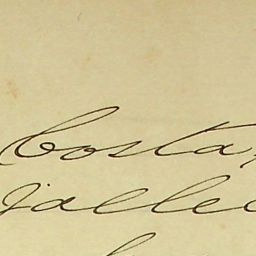 costa,
jallec